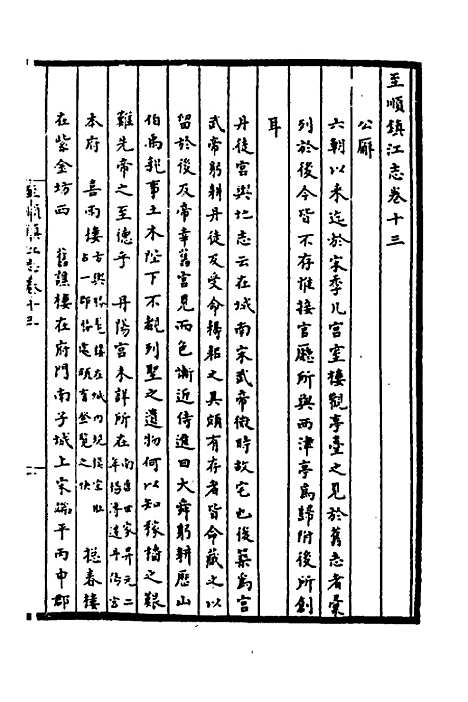 至順鎮江志卷十三
公廨
六朝以來迄於宋季凡宮室樓觀亭臺之見於舊志者彙
列於後今皆不存惟接官廳所與西津亭為歸附後所創
耳
丹徒宮輿地志云在城南宋武帝微時故宅也後築為宮
武帝躬耕丹徒及受命耨耜之具頗有存者皆命藏之以
留於後及帝幸舊宮見而色慚近侍進曰大舜躬耕歷山
伯禹親事土木陛下不覩列聖之遺物何以知稼穡之艱
難先帝之至德乎 丹陽宮未詳所在南唐世家昇元二年楊溥遷丹陽宮
本府 喜雨樓方輿勝覽樓在城內規模宏壯占一郡勝處頗有登覽之快 挹春樓
在紫金坊西 舊譙樓在府門南子城上宋端平丙申郡
至順鎮江志卷十三